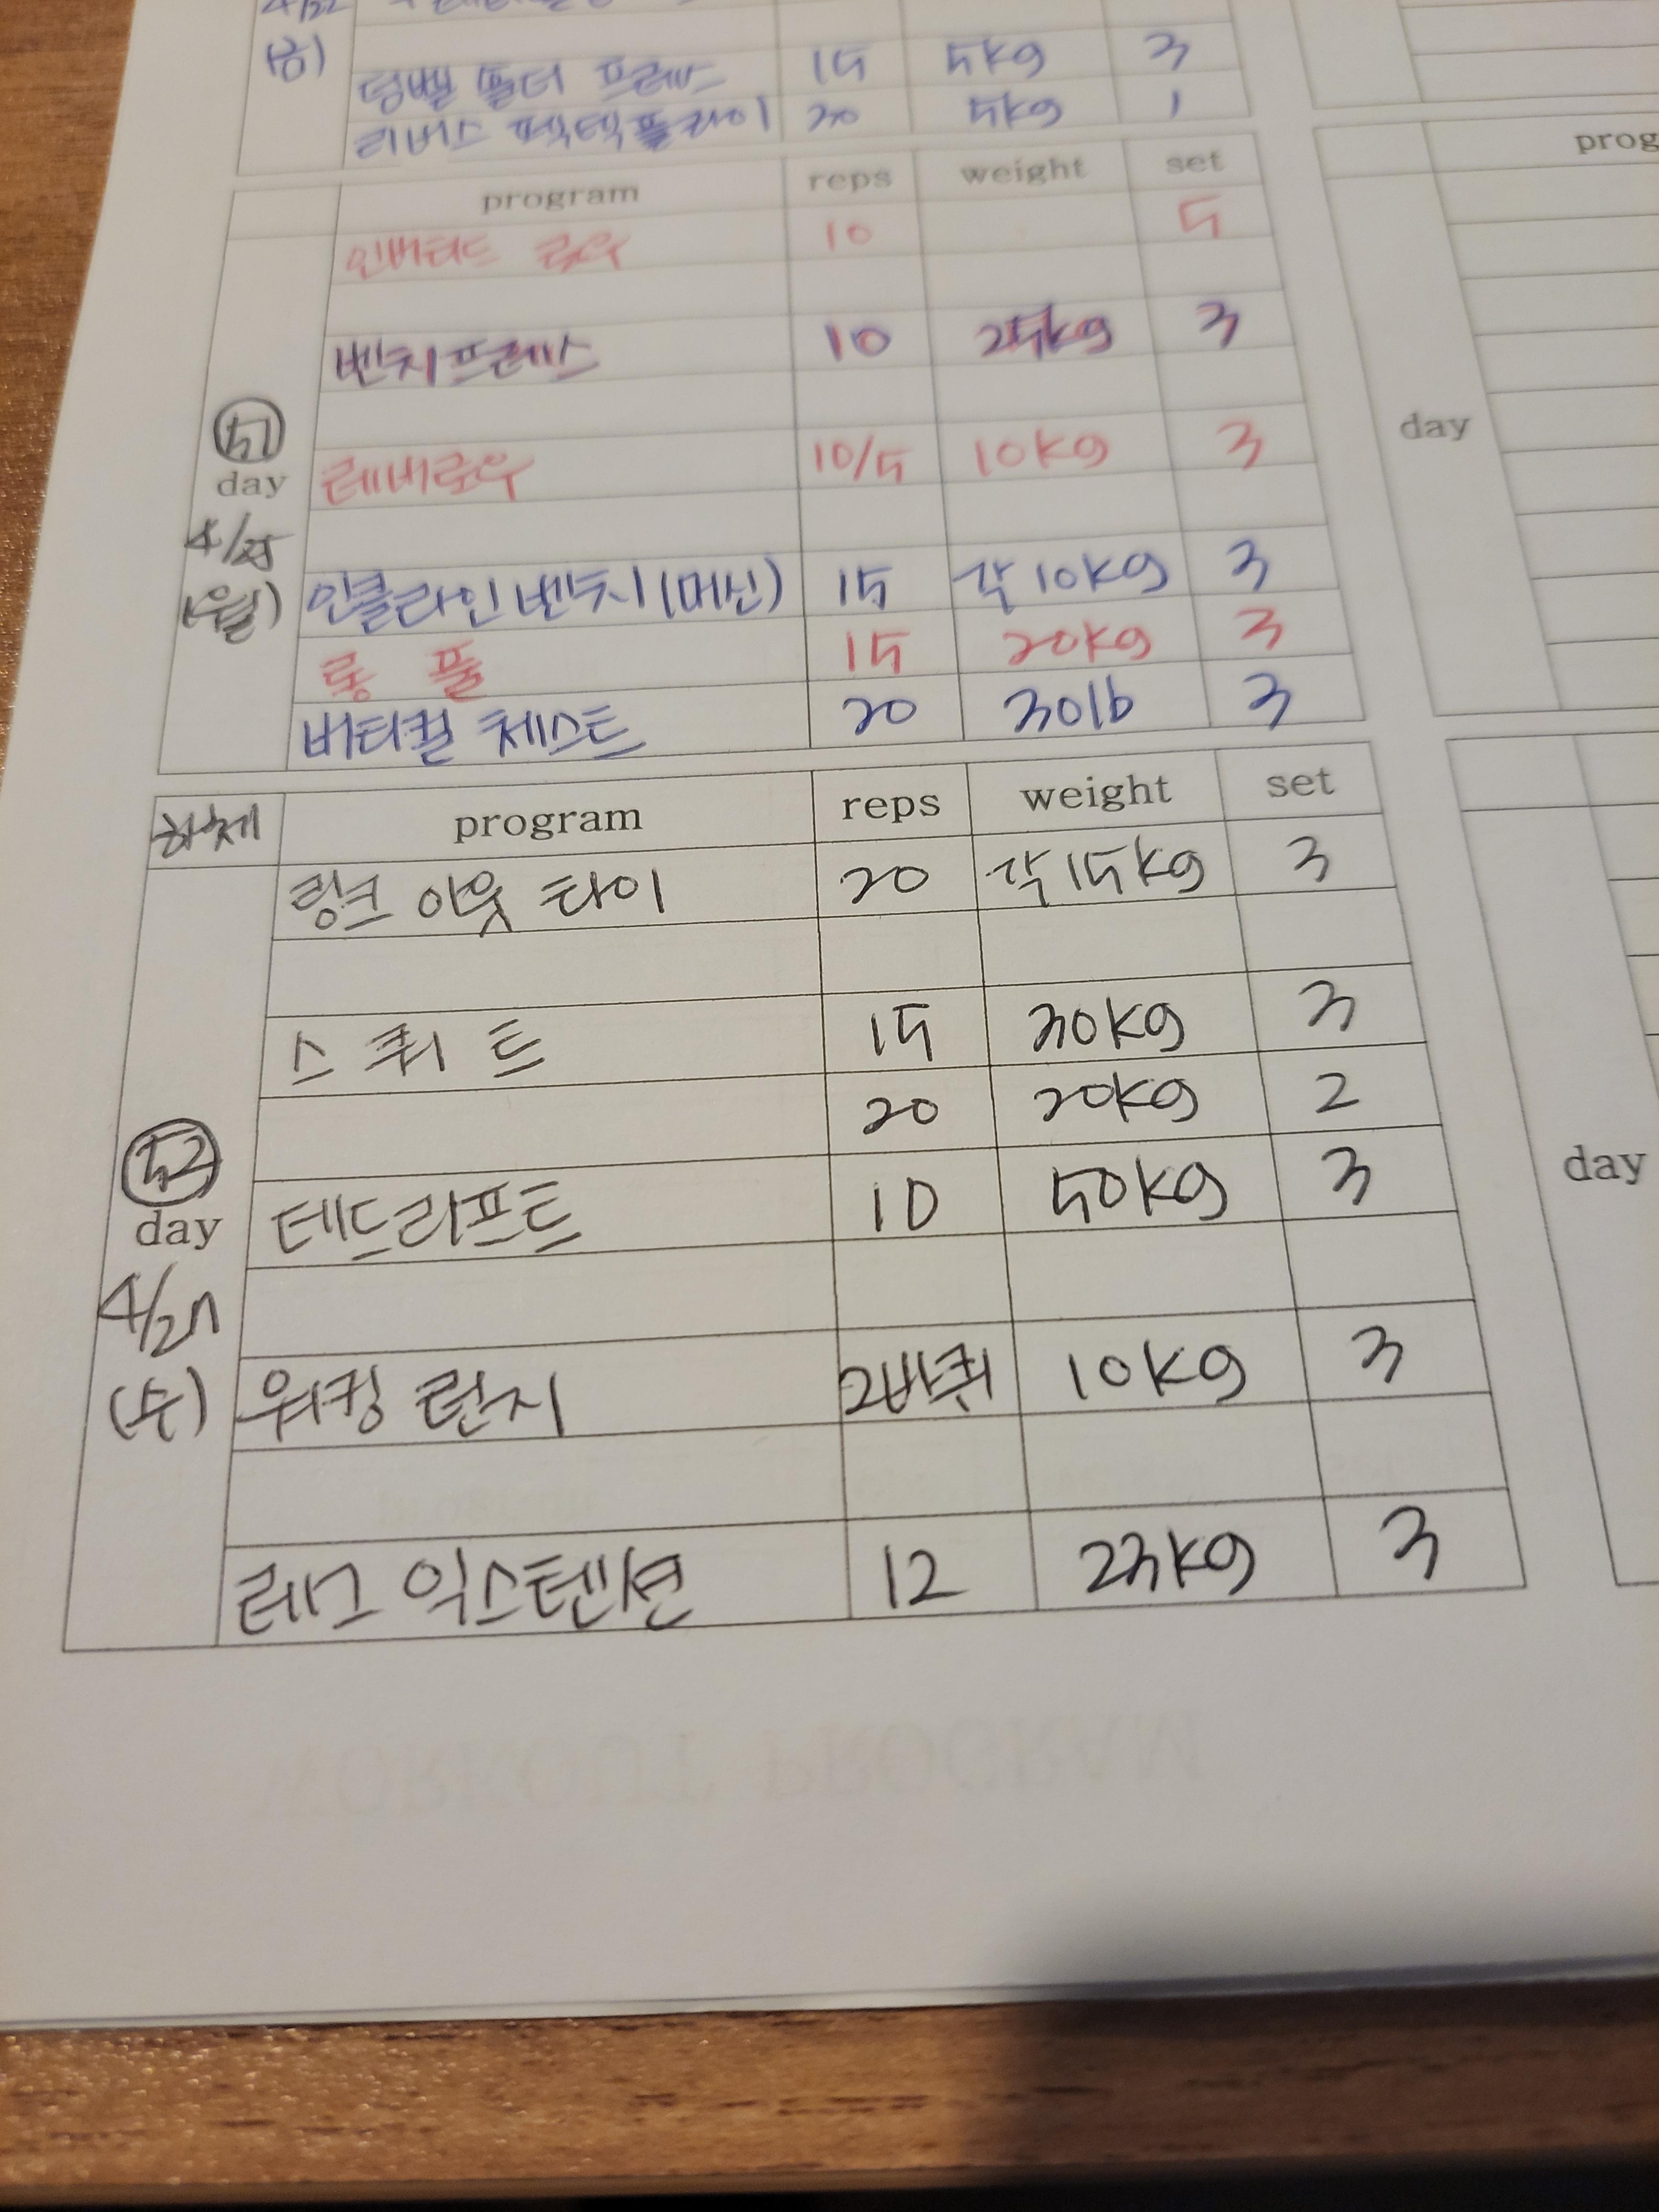 4/22
(금)
덤벨 숄더 프레스 15 5kg 3
리버스 펙덱플라이 20 5kg 1
program reps weight set
인버티드 로우 10 5
벤치프레스 10 25kg 3
51
day
4/25
(월)
레버로우 10/5 10kg 3
인클라인벤치(머신) 15 각 10kg 3
롱 풀 15 20kg 3
버티컬 체스트 20 30lb 3
하체 program reps weight set
링크 아웃 타이 20 각 15kg 3
스쿼트 15 30kg 3
20 20kg 2
52
day
4/27
(수)
데드리프트 10 50kg 3
워킹 런지 2바퀴 10kg 3
레그 익스텐션 12 23kg 3
prog
day
day
WORKOUT PROGRAM